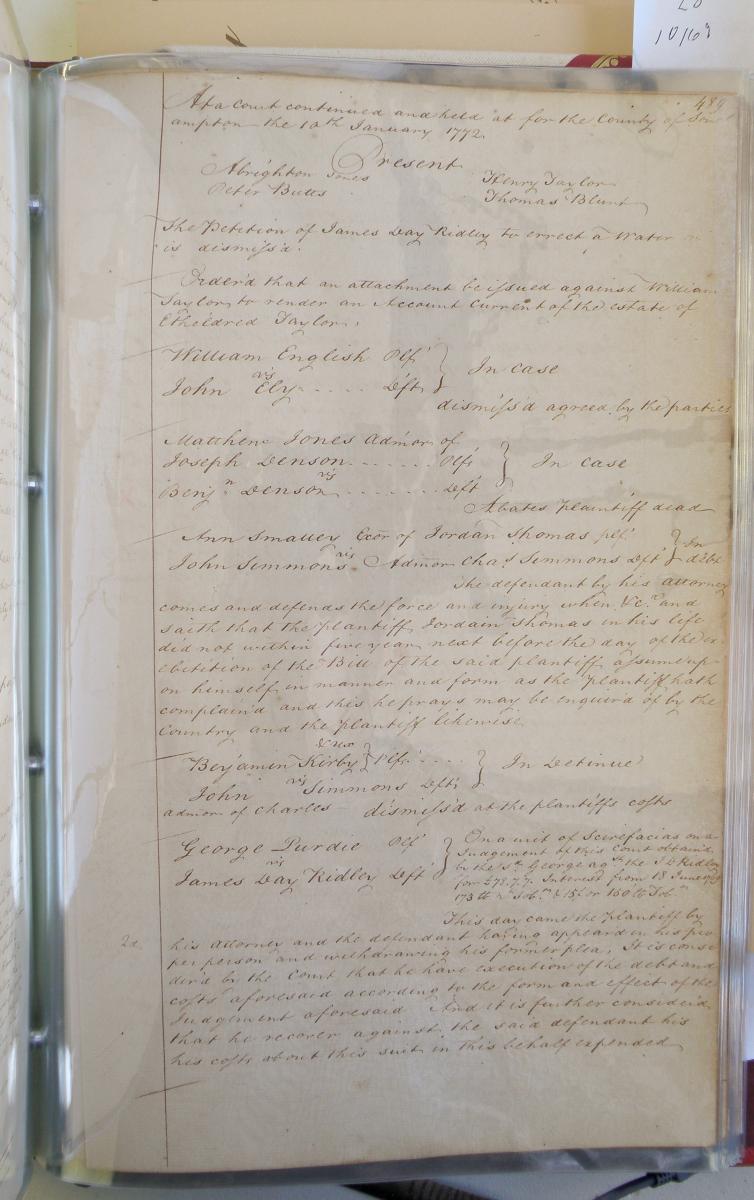 10/63
484
At a Court continued and held at for the County of South
ampton the 10th January 1772
Present
Albrighton Jones
Henry Taylor
Peter Butts
Thomas Blunt
The Petition of James Day Ridley to errect a Water
is dismiss'd.
Order'd that an attachment be issued against William
Taylor to render an Account Current of the estate of
Etheldred Taylor.
William English Plf
vs
In case
John Ely ..... Deft
dismiss'd agreed by the parties
Matthew Jones admor of
Joseph Denson ...... Plf
vs
In case
Benjn Denson ........ Deft
Abates Plaintiff dead
Ann Smalley Exor of Jordan Thomas plf
vs
In debt
John Simmons Admor Chas Simmons Deft
The defendant by his attorney
comes and defends the force and injury when &c. and
saith that the plantiff Jordain Thomas in his life
did not within five year next before the day of the ex
ebetition of the Bill of the said plantiff assume up
on himself in manner and form as the plantiff hath
complain'd and this he prays may be enquir'd of by the
Country and the plantiff likewise
& ux
Benjamin Kirby Plf ....
vs
In Detinue
John Simmons Deft
admor of Charles
dismiss'd at the plantiffs costs
George Purdie Plf
vs
James Day Ridley Deft
On a writ of Scirefacias on a
Judgement of this Court obtain'd
by the sd George agst the sd Ridley
for £78.7.7. Interest from 18 June
173 lb Tobo & 15/ or 150 lb Tobo
This day came the plantiff by
2d.
his attorney and the defendant having appeard in his pro
per person and withdrawing his former plea, It is consi
der'd by the Court that he have execution of the debt and
costs aforesaid according to the form and effect of the
Judgement aforesaid And it is further consider'd
that he recover against the said defendant his
his costs about this suit in this behalf expended